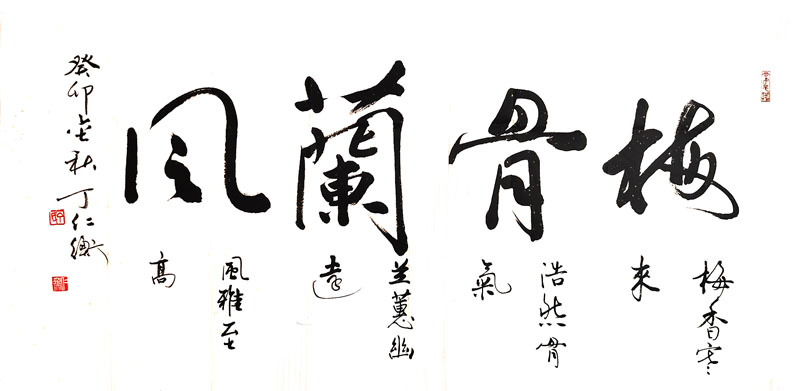 梅骨蘭風
梅香寒
來
浩然骨
氣
兰蕙幽
遠
風雅至
高
癸卯金秋 丁仁衡